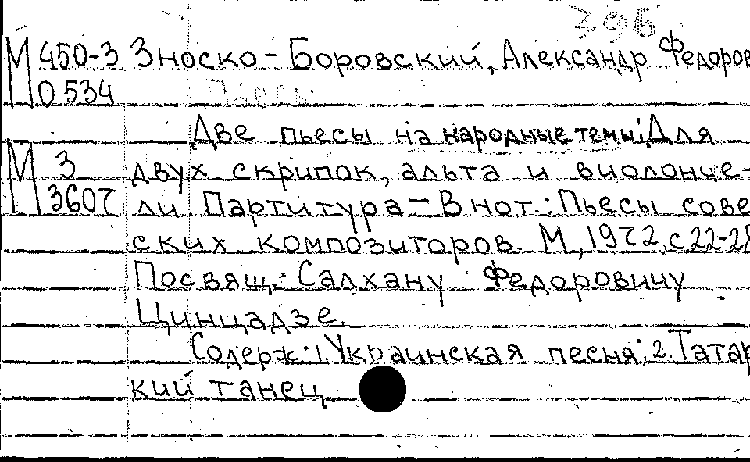 306
М 450-3 Зноско-Боровский, Александр Федоров
0534
Две пьесы на народные темы: Для
М 3 двух скрипок, альта и виолонче-
3607 ли Партитура - В нот: Пьесы сове
ских композиторов. М, 1972, с 22-28
Посвящ.: Салхану Федоровичу
Цинцадзе.
Содерж: 1. Украинская песня; 2. Татар
кий танец